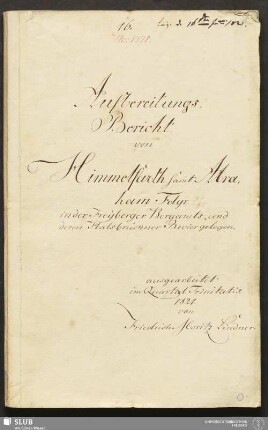 16.
Aufbereitungs-
Bericht
von
Himmelfarth samt Abra-
ham Fdgr.
in der Freyberger Bergamts- und
deren Halsbrückner Revier gelegen.
ausgearbeitet
im Quartal Trinitatis
1821
von
Friedrich Moritz Lindner
SLUB